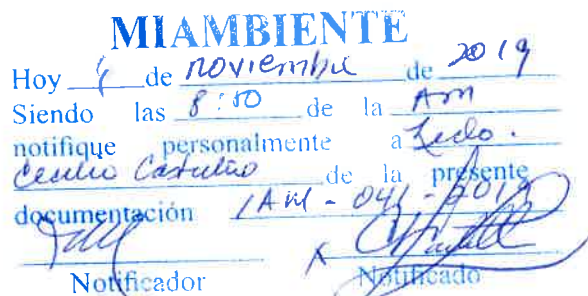 MIAMBIENTE
Hoy de noviembre de 2019
Siendo las 8:50 de la Am
notifique personalmente a Licdo.
Cecilio Castillero de la presente
documentación IAM-041-2019
Notificador Notificado